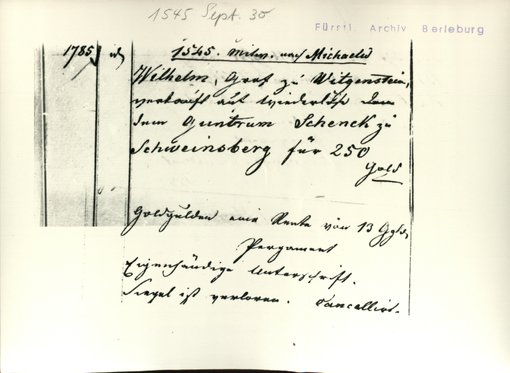 1545 Sept. 30
Fürstl. Archiv Berleburg
1785
1545. Mitw. nach Michaelis
Wilhelm, Graf zu Witgenstein,
verkauft auf Wiederlöse
dem Guntrum Schenck zu
Schweinsberg für 250
Gold
Goldgulden eine Rente von 13 Ggld,
Pergament
Eigenhändige Unterschrift.
Siegel ist verloren. Cancellirt.